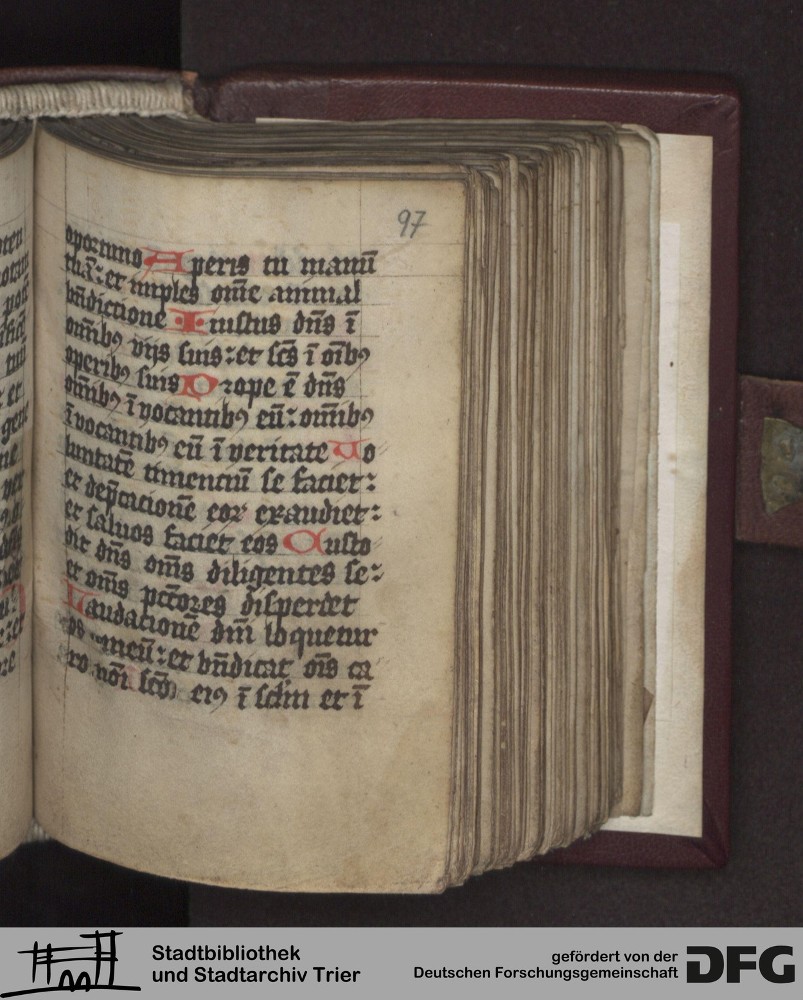 97
oportuno Aperis tu manū
tuā: et imples om̄e animal
bn̄dictione Iustus dn̄s ī
om̄ibꝰ vijs suis: et scs̄ ī oīb9
operib9 suis Prope ē dn̄s
om̄ib9 īvocantib9 eū: om̄ib9
īvocantib9 eū ī veritate Uo
luntatē timentiū se faciet:
et dep̄catione eoꝝ exaudiet:
et saluos faciet eos Custo
dit dn̄s om̄s diligentes se:
et om̄s pctōres disperdet
Laudationē dn̄i loquetur
os meū: et bn̄dicat ōis ca
ro nōi scō ei9 ī sclm̄ et ī
Stadtbibliothek
und Stadtarchiv Trier
gefördert von der
Deutschen Forschungsgemeinschaft
DFG